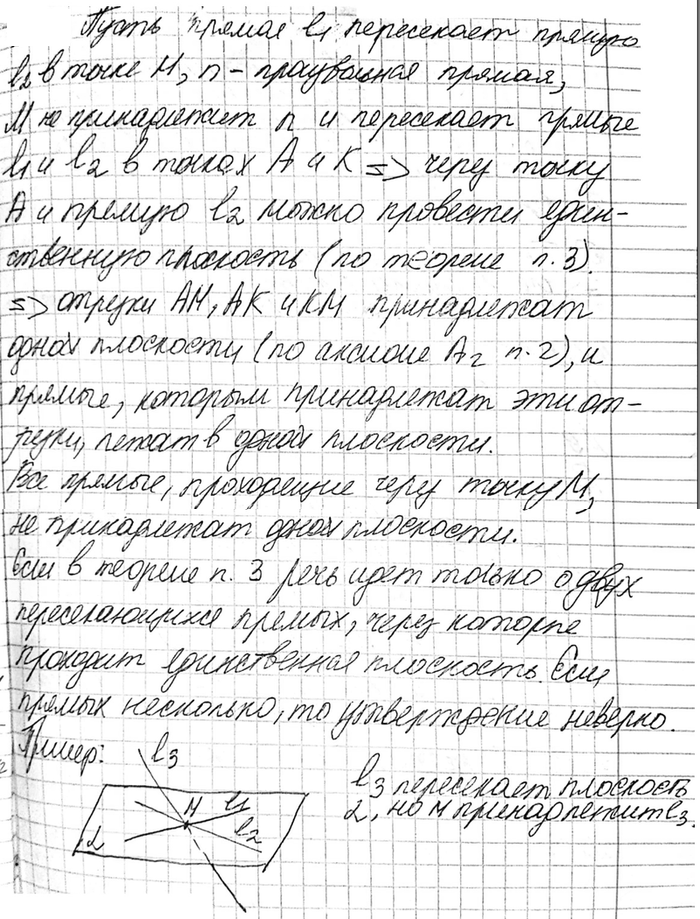 Пусть прямая l₁ пересекает прямую
l₂ в точке М, n - произвольная прямая,
М не принадлежит n и пересекает прямые
l₁ и l₂ в точках А и К => через точку
А и прямую l₂ можно провести един-
ственную плоскость (по теореме п.3).
=> отрезки АМ, АК и КМ принадлежат
одной плоскости (по аксиоме А₂ п.2), и
прямые, которым принадлежат эти от-
резки, лежат в одной плоскости.
Все прямые, проходящие через точку М,
не принадлежат одной плоскости.
Если в теореме п. 3 речь идет только о двух
пересекающихся прямых, через которые
проходит единственная плоскость. Если
прямых несколько, то утверждение неверно.
Пример:
l₃
M
l₁
l₂
α
l₃ пересекает плоскость
α, но М принадлежит l₃.